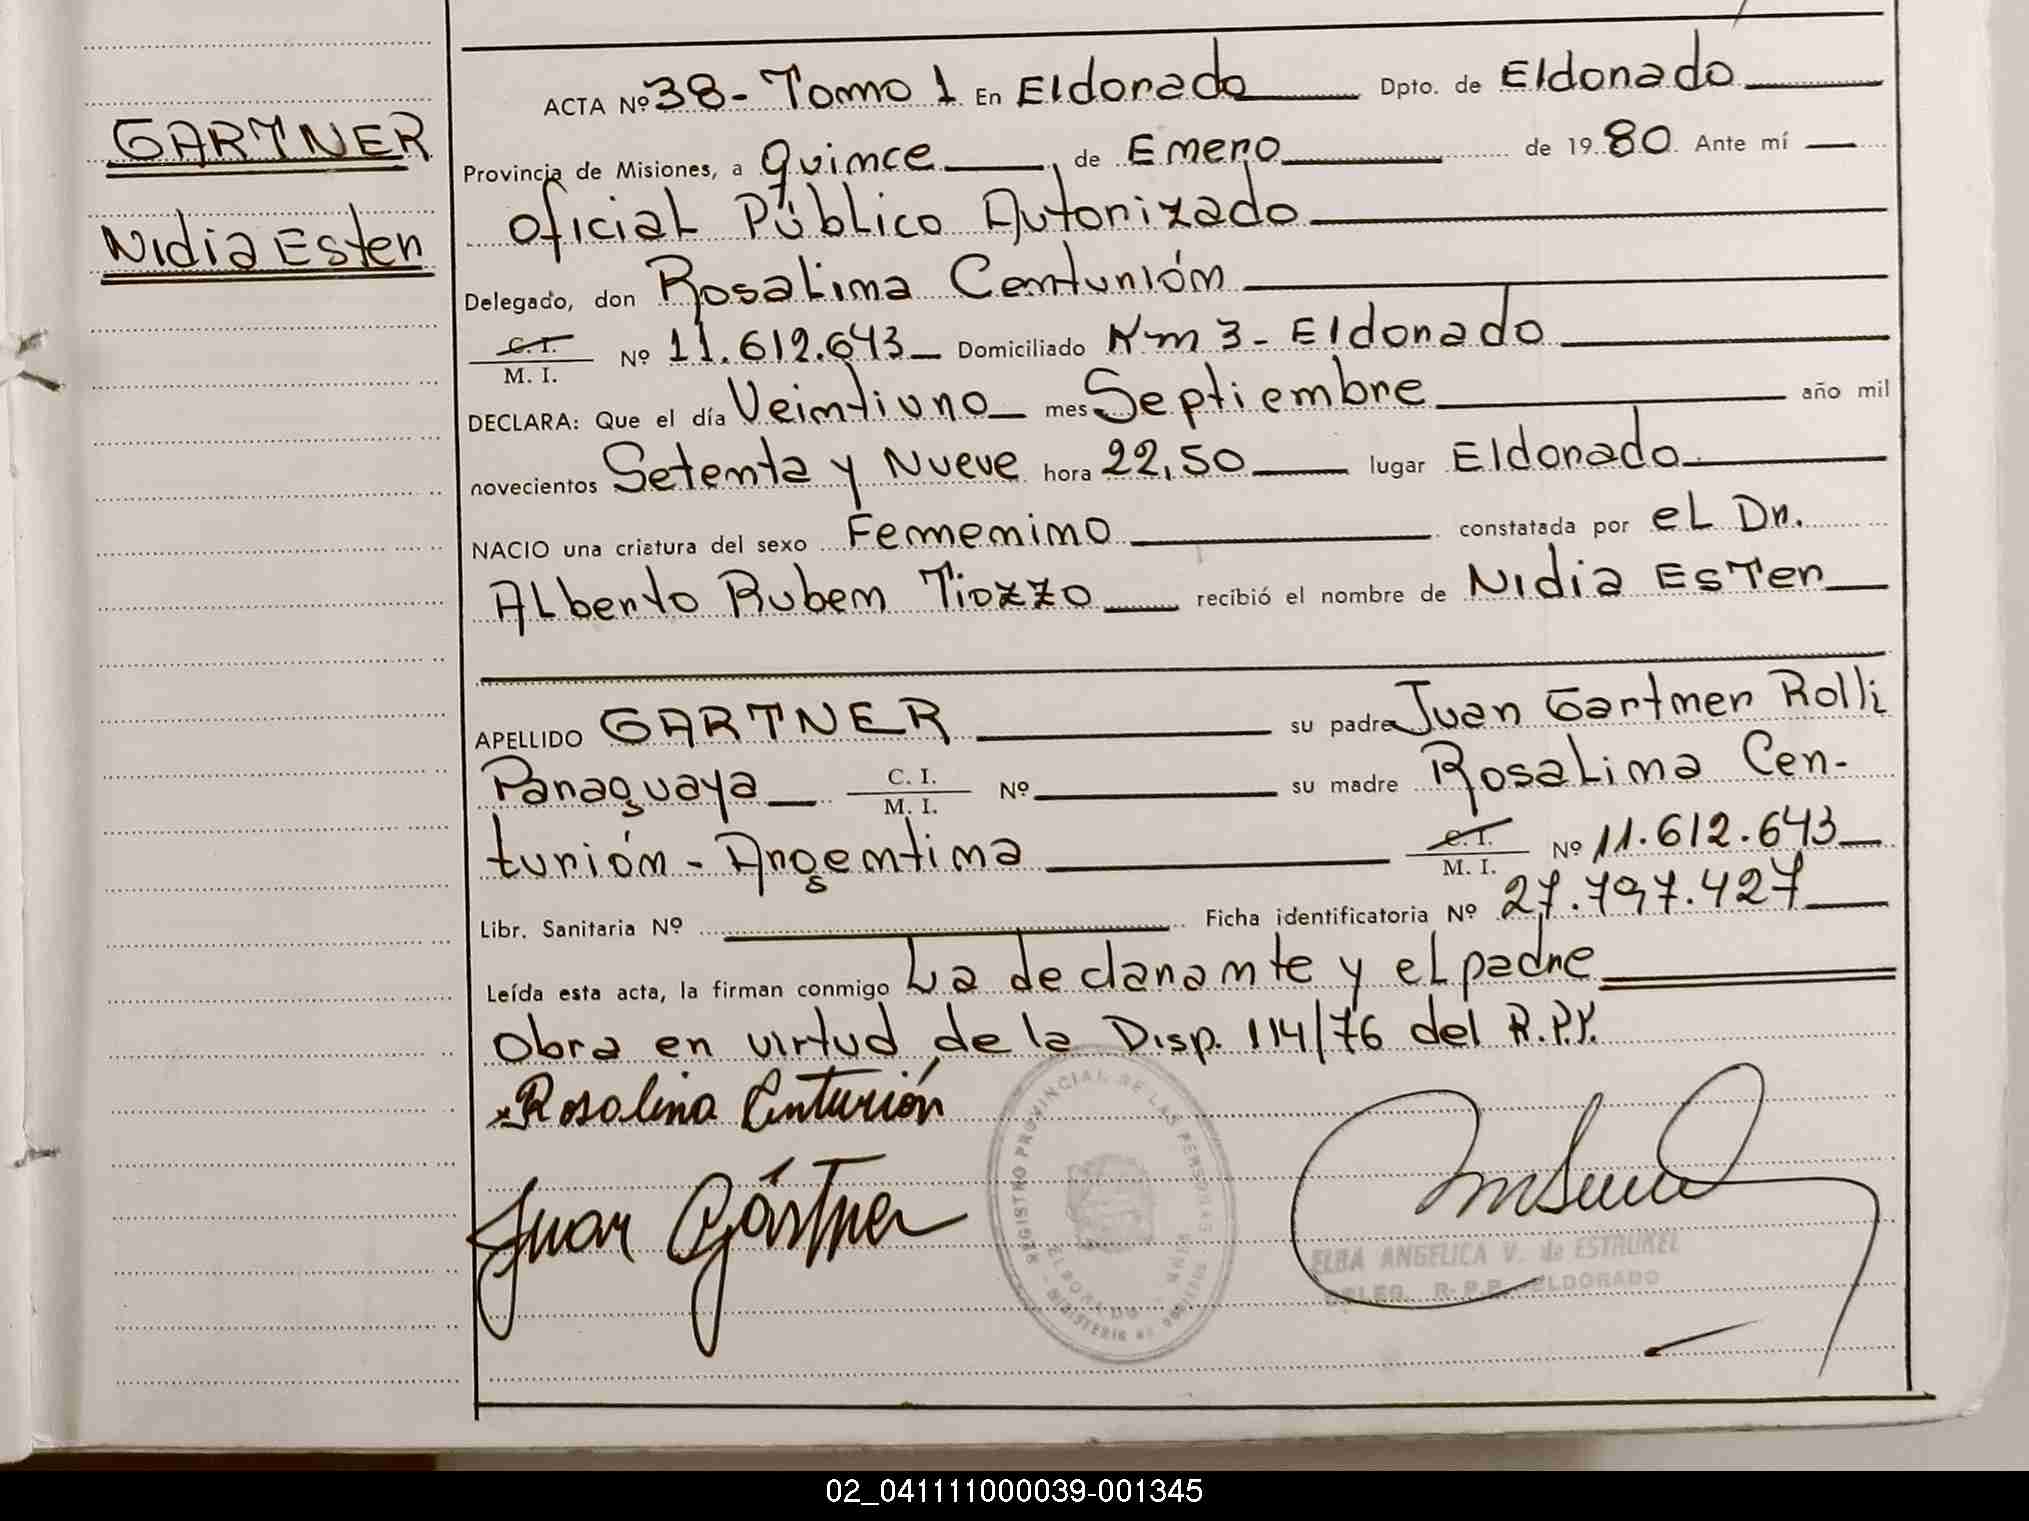 GARTNER
Nidia Ester
ACTA Nº 38 - Tomo 1 En Eldorado Dpto. de Eldorado
Provincia de Misiones, a quince de Enero de 1980 Ante mí
oficial Público Autorizado
Delegado, don Rosalina Centurión
C. I.
M. I. Nº 11.612.643 Domiciliado Km 3 - Eldorado
DECLARA: Que el día Veintiuno mes Septiembre año mil
novecientos Setenta y Nueve hora 22,50 lugar Eldorado
NACIO una criatura del sexo Femenino constatada por el Dr.
Alberto Ruben Tiozzo recibió el nombre de Nidia Ester
APELLIDO GARTNER su padre Juan Gartner Rolli
Paraguaya C. I. M. I. Nº su madre Rosalina Cen-
turión - Argentina C. I. M. I. Nº 11.612.643
Libr. Sanitaria Nº Ficha identificatoria Nº 27.797.427
Leída esta acta, la firman conmigo La declarante y el padre
Obra en virtud de la Disp. 114/76 del R.P.P.
Rosalina Centurión
Juan Gärtner
REGISTRO PROVINCIAL DE LAS PERSONAS
ELDORADO
ELBA ANGELICA V. de
DELEG. R.P.P. ELDORADO
02_041111000039-001345